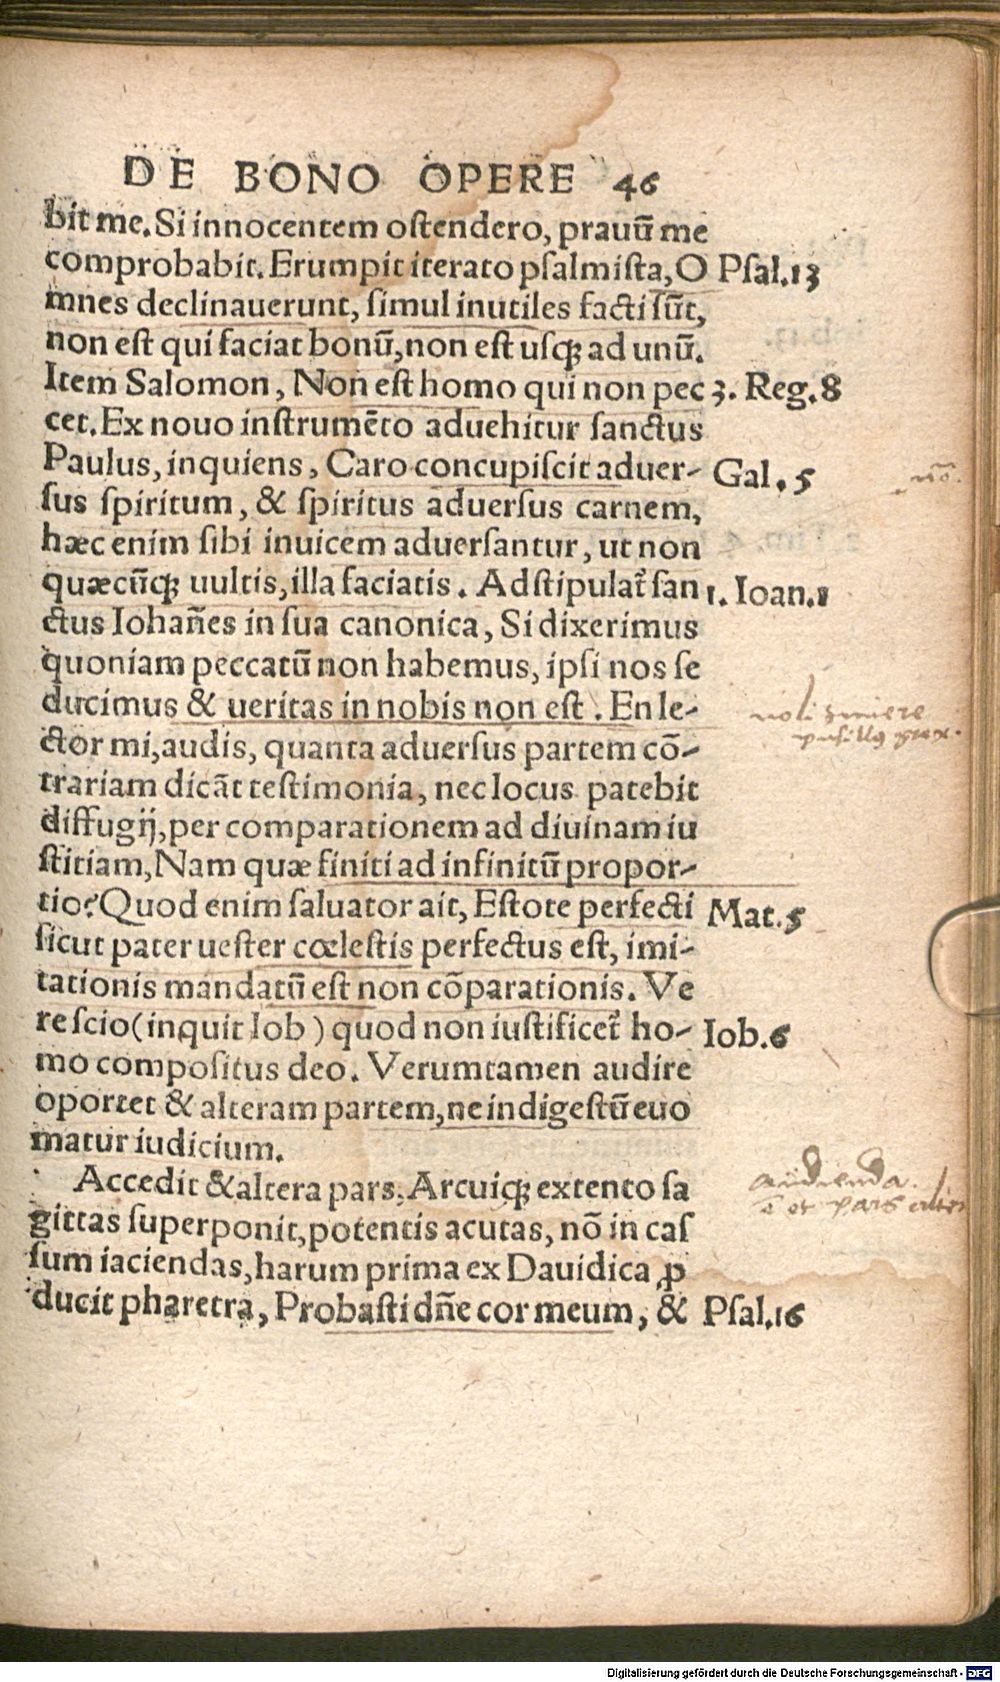 DE BONO OPERE 46
bit me. Si innocentem ostendero, prauũ me
comprobabit. Erumpit iterato psalmista, O Psal.13
mnes declinauerunt, simul inutiles facti sũt,
non est qui faciat bonũ, non est usqꝫ ad unũ.
Item Salomon, Non est homo qui non pec 3. Reg.8
cet. Ex nouo instrumẽto aduehitur sanctus
Paulus, inquiens, Caro concupiscit aduer- Gal. 5
sus spiritum, & spiritus aduersus carnem,
hæc enim sibi inuicem aduersantur, ut non
quæcũqꝫ uultis, illa faciatis. Adstipulat̃ san 1. Ioan.1
ctus Iohañes in sua canonica, Si dixerimus
quoniam peccatũ non habemus, ipsi nos se
ducimus & ueritas in nobis non est. En le-
noli timere
ctor mi, audis, quanta aduersus partem cõ-
pusillus grex.
trariam dicãt testimonia, nec locus patebit
diffugij, per comparationem ad diuinam iu
stitiam, Nam quæ finiti ad infinitũ propor-
tio? Quod enim saluator ait, Estote perfecti Mat.5
sicut pater uester cœlestis perfectus est, imi-
tationis mandatũ est non cõparationis. Ve
re scio (inquit Iob) quod non iustificet̃ ho- Iob.6
mo compositus deo. Verumtamen audire
oportet & alteram partem, ne indigestũ euo
matur iudicium.
Accedit & altera pars. Arcuiqꝫ extento sa
audienda.
ẽ et pars alter
gittas superponit, potentis acutas, nõ in cas
sum iaciendas, harum prima ex Dauidica ꝓ
ducit pharetra, Probasti dñe cor meum, & Psal.16
Digitalisierung gefördert durch die Deutsche Forschungsgemeinschaft - DFG